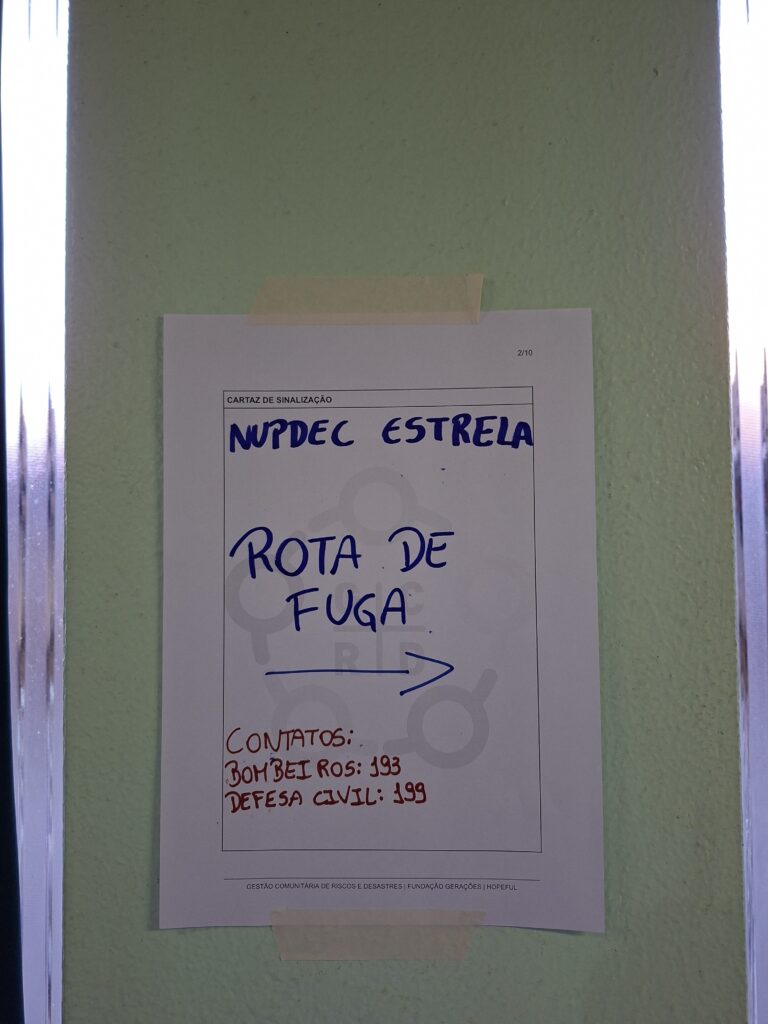 2/10
CARTAZ DE SINALIZAÇÃO
NUPDEC ESTRELA
ROTA DE
FUGA
CONTATOS:
BOMBEIROS: 193
DEFESA CIVIL: 199
GESTÃO COMUNITÁRIA DE RISCOS E DESASTRES | FUNDAÇÃO GERAÇÕES | HOPEFUL